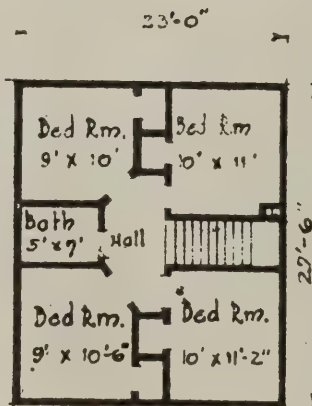 23'-0"
Bed Rm.
9' x 10'
Bed Rm
10' x 11'
Bath
5' x 7'
Hall
27'-6"
Bed Rm.
9' x 10'-6"
Bed Rm.
10' x 11'-2"